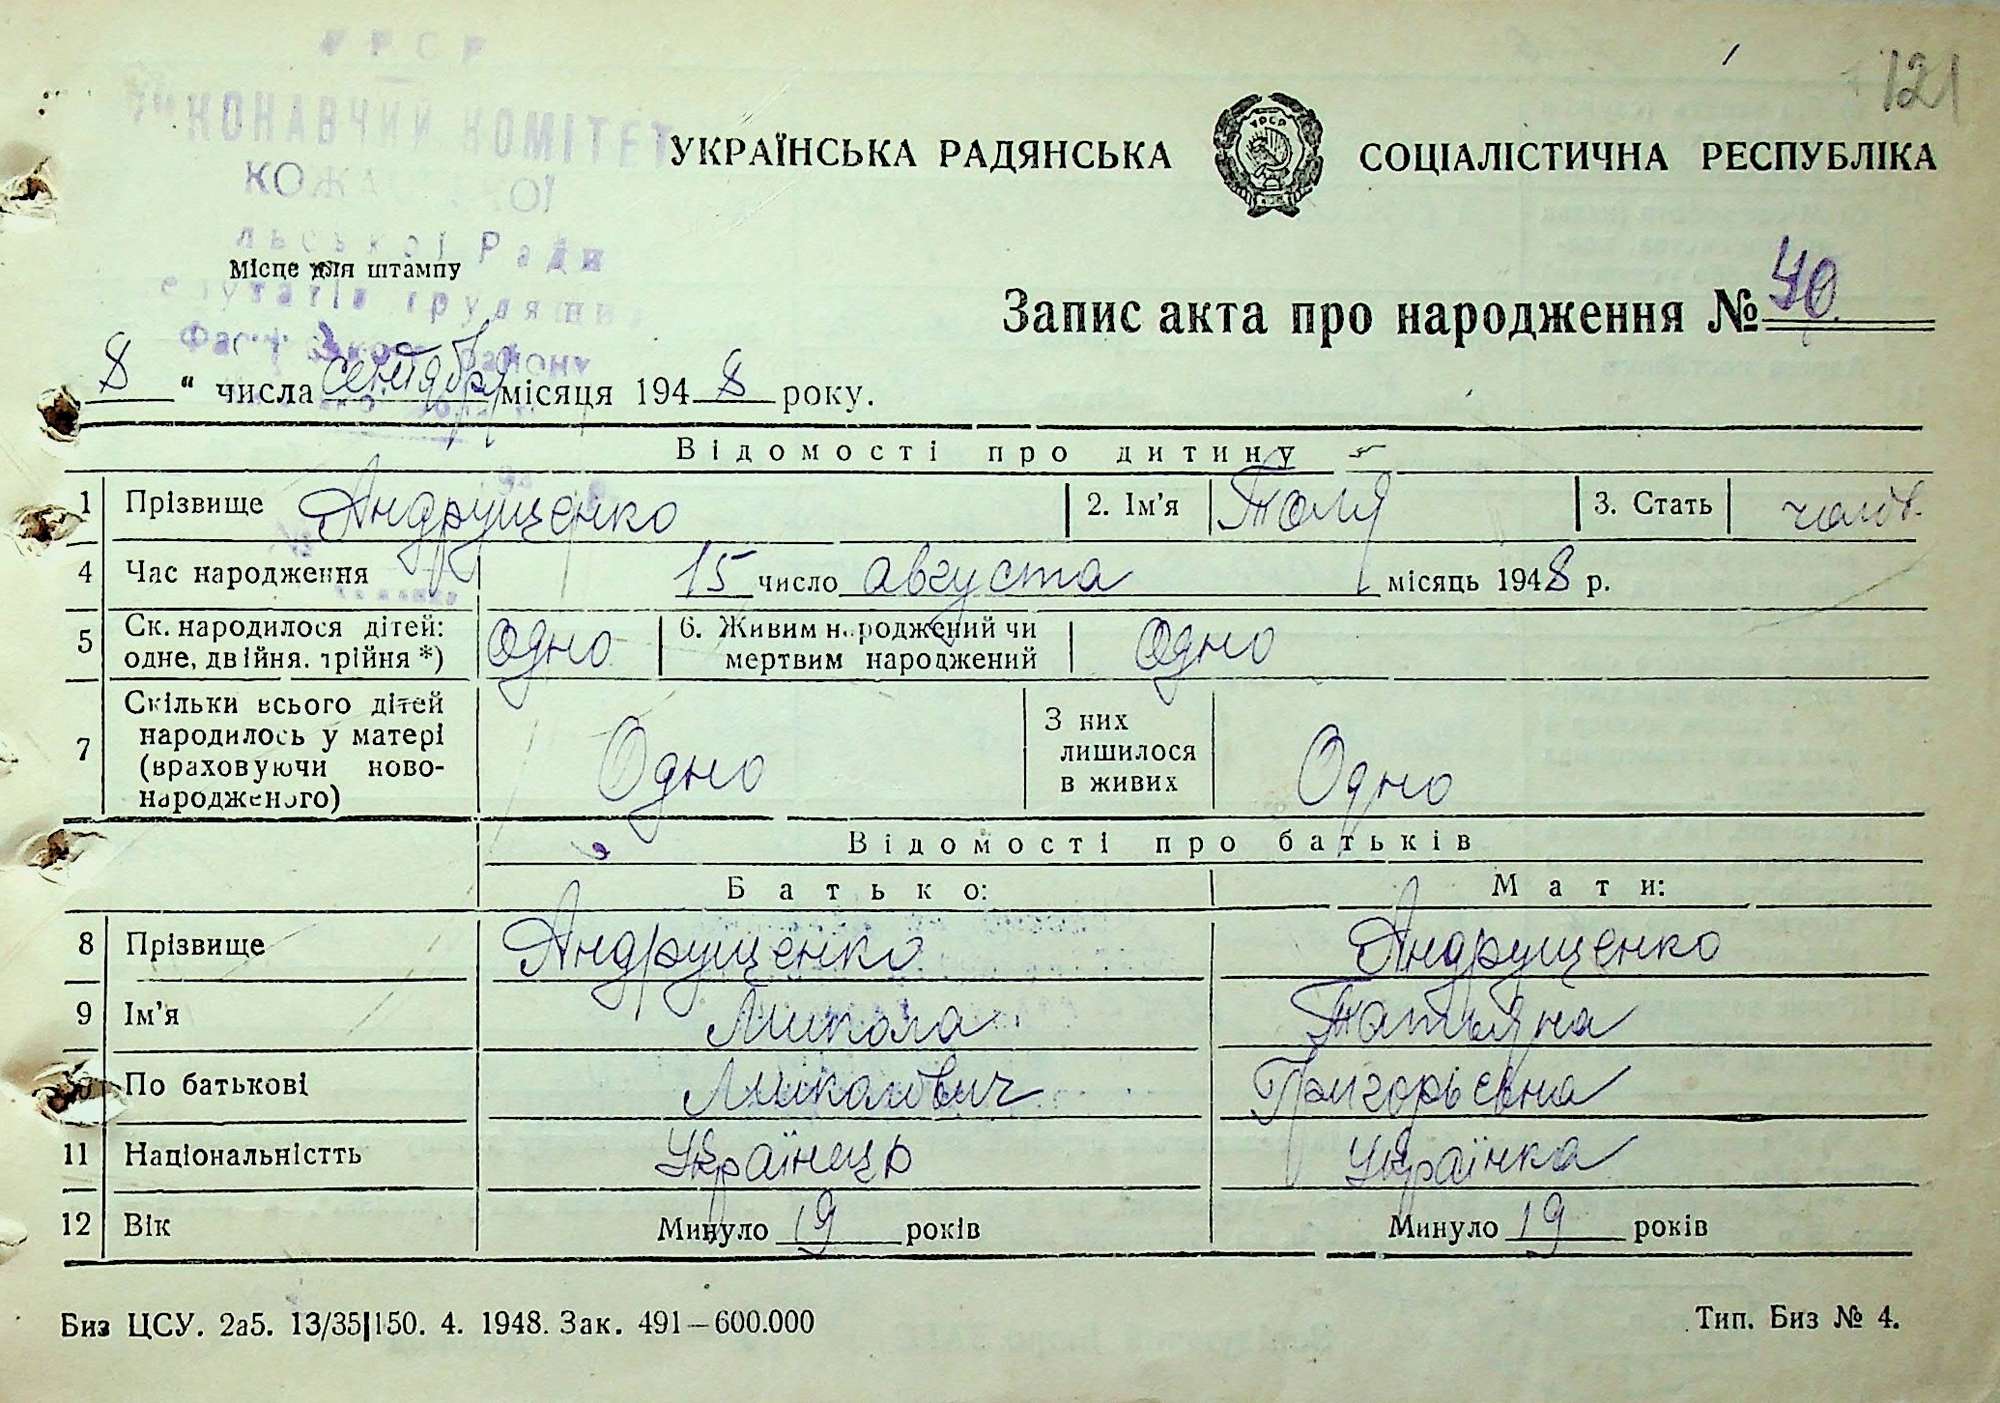 УРСР
121
КОНАВЧИЙ КОМІТЕТ
УКРАЇНСЬКА РАДЯНСЬКА СОЦІАЛІСТИЧНА РЕСПУБЛІКА
льської Ради
Місце для штампу
Запис акта про народження № 40
8 " числа сентября місяця 1948 року.
Відомості про дитину
1 Прізвище Андрущенко 2. Ім'я Толя 3. Стать
4 Час народження 15 число августа місяць 1948 р.
5 Ск. народилося дітей: одне, двійня. трійня *) Одно 6. Живим народжений чи мертвим народжений Одно
7 Скільки всього дітей народилось у матері (враховуючи ново-народженого) Одно З них лишилося в живих Одно
Відомості про батьків
Батько: Мати:
8 Прізвище Андрущенко Андрущенко
9 Ім'я Микола Татьяна
10 По батькові Миколович Григорьевна
11 Національністть Українець Українка
12 Вік Минуло 19 років Минуло 19 років
Биз ЦСУ. 2а5. 13/35|150. 4. 1948. Зак. 491—600.000 Тип. Биз № 4.